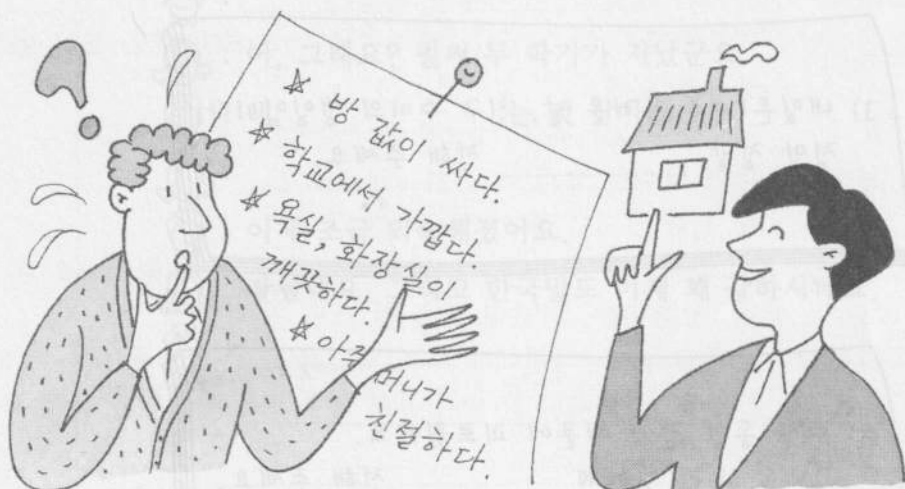 ☆ 방 값이 싸다.
☆ 학교에서 가깝다.
☆ 욕실, 화장실이
깨끗하다.
☆ 아주머니가
친절하다.